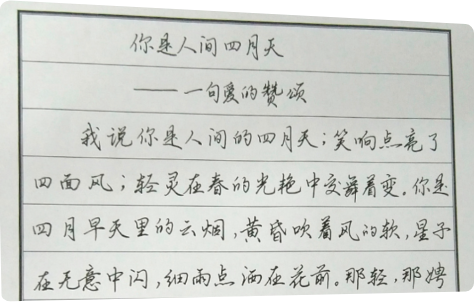 你是人间四月天
——一句爱的赞颂
我说你是人间的四月天；笑响点亮了
四面风；轻灵在春的光艳中交舞着变。你是
四月早天里的云烟，黄昏吹着风的软，星子
在无意中闪，细雨点洒在花前。那轻，那娉